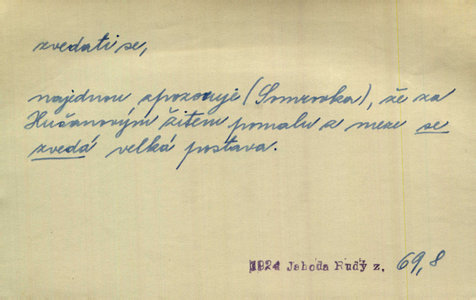 zvedati se,
najednou zpozoruje (Somrovka), že za
Hučanovým žitem pomalu z meze se
zvedá velká postava.
1924 Jahoda Rudý z. 69,8